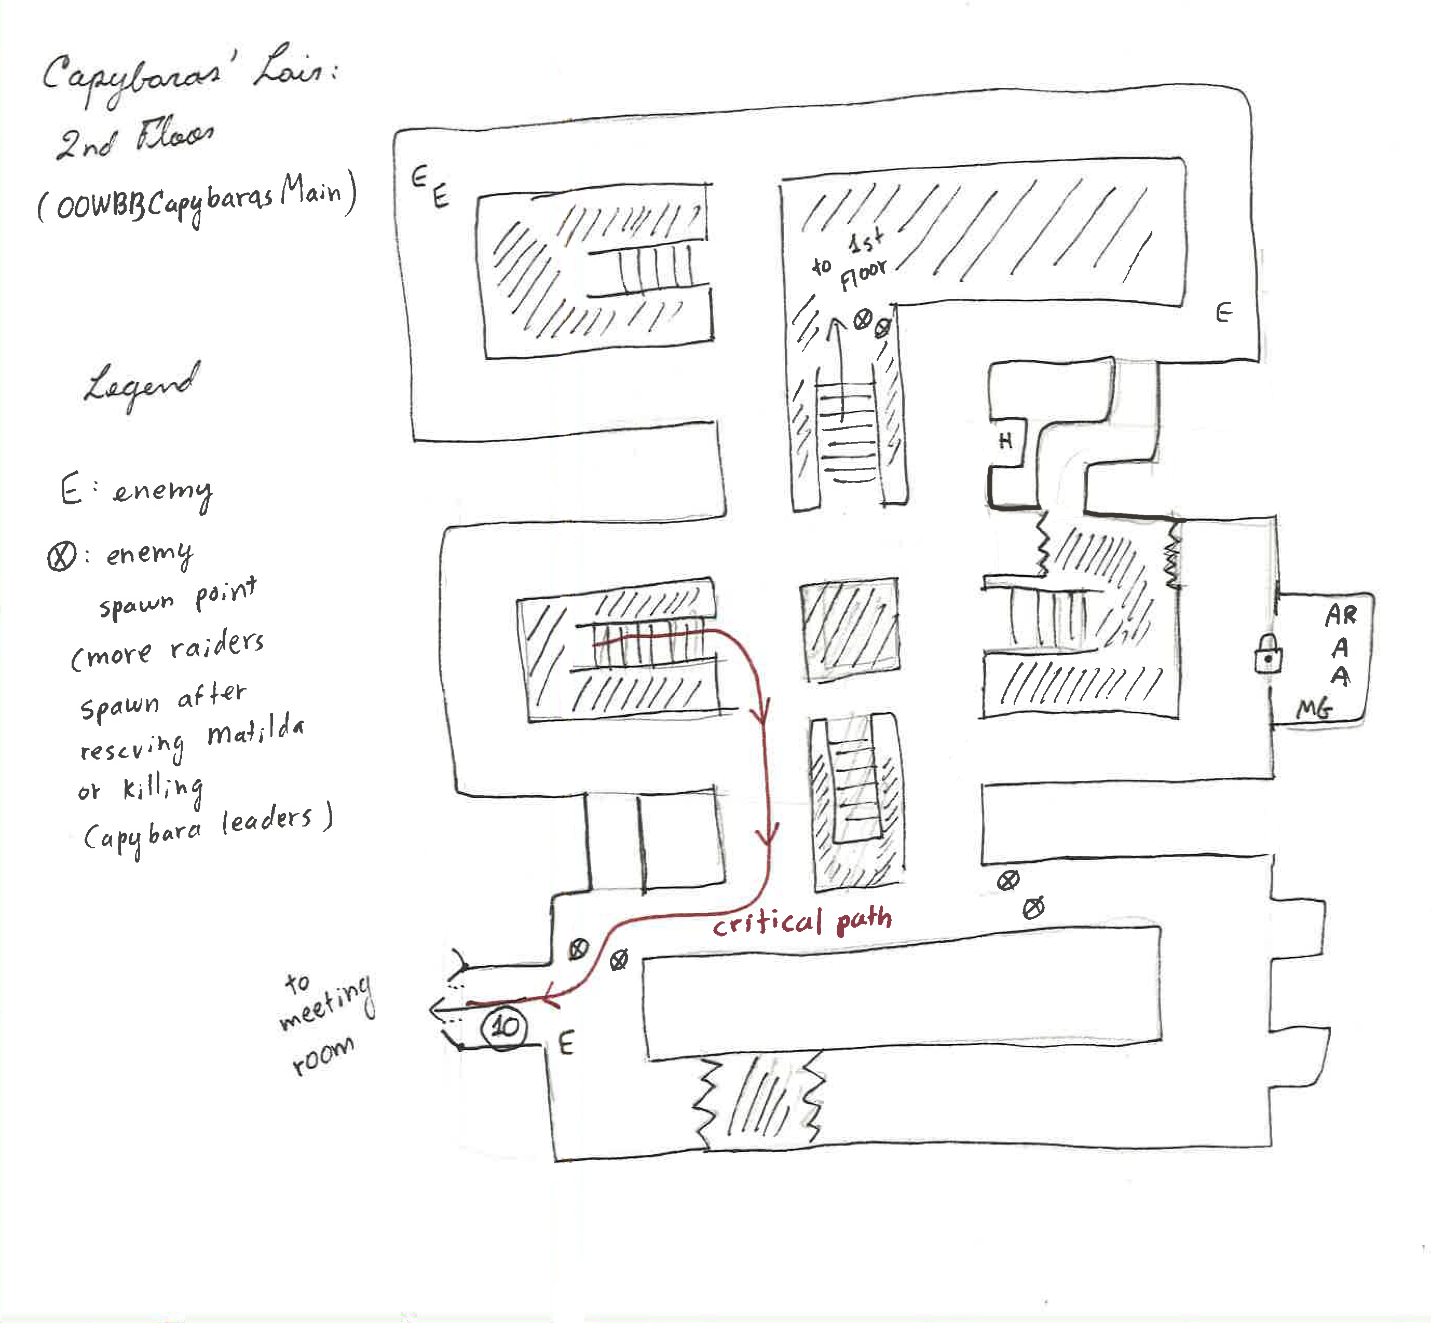 Capybaras' Lair:
2nd Floor
(00WBBCapybarasMain)
Legend
E: enemy
ⓧ: enemy
spawn point
(more raiders
spawn after
rescuing Matilda
or killing
Capybara leaders)
E
E
to 1st
Floor
E
H
AR
A
A
MG
critical path
to
meeting
room
10
E